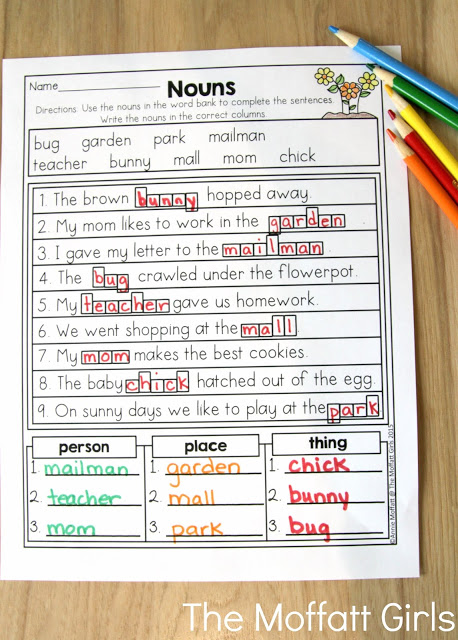 Name
Nouns
Directions: Use the nouns in the word bank to complete the sentences.
Write the nouns in the correct columns.
bug garden park mailman
teacher bunny mall mom chick
1. The brown bunny hopped away.
2. My mom likes to work in the garden.
3. I gave my letter to the mailman.
4. The bug crawled under the flowerpot.
5. My teacher gave us homework.
6. We went shopping at the mall
7. My mom makes the best cookies.
8. The baby chick hatched out of the egg.
9. On sunny days we like to play at the park
person place thing
1. mailman 1. garden 1. chick
2. teacher 2. mall 2. bunny
3. mom 3. park 3. bug
©Annie Moffatt @ The Moffatt Girls 2015
The Moffatt Girls